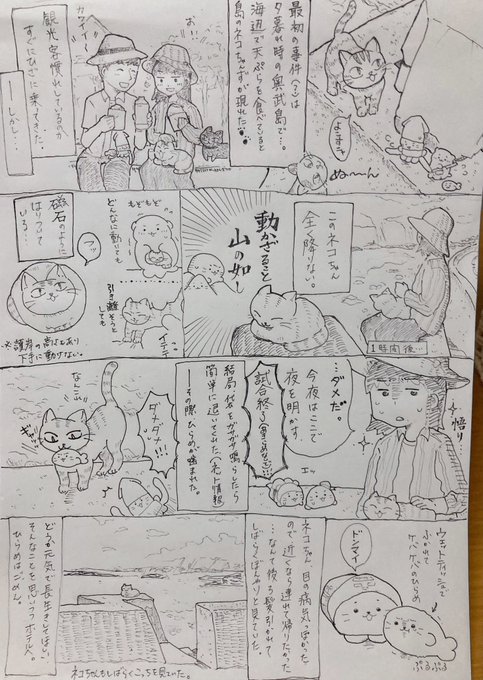 最初の事件(?)は
夕暮れ時の奥武島で…。
海辺で天ぷらを食べていると
島のネコちゃんずが現れた
よすき
ぬ〜ん
カワイイ〜
観光客慣れしているのか
すぐにひざに乗ってきた。
――しかし…
1時間後…
このネコちゃん
全く降りない。
動かざること
山の如し
もどもど
どんなに動いても
引き離そうと
しても
イテテ
磁石のように
はりついて
いる…
※護岸の高さもあり
下手に動けない。
悟り
…ダメだ。
今夜はここで
夜を明かす
試合終了(夢らめないで…)
エッ
結局袋をガサガサ鳴らしたら
簡単に退いてくれた(ネット情報)
――その際ひらめが噛まれた。
ダメダメ!!!
なんこれ
ギャッ
ウェットティッシュで
ふかれて
ケバケバのひらめ
ドンマイ!
ぷるぷる
ネコちゃん、目の病気っぽかった
ので近くなら連れて帰りたかった
…なんて後ろ髪引かれて
しばらくぼんやりと見ていた。
ネコちゃんもしばらくこっちを見ていた。
どうか元気で長生きしてほしい
そんなことを思いつつホテルへ。
ひらめはごめん。